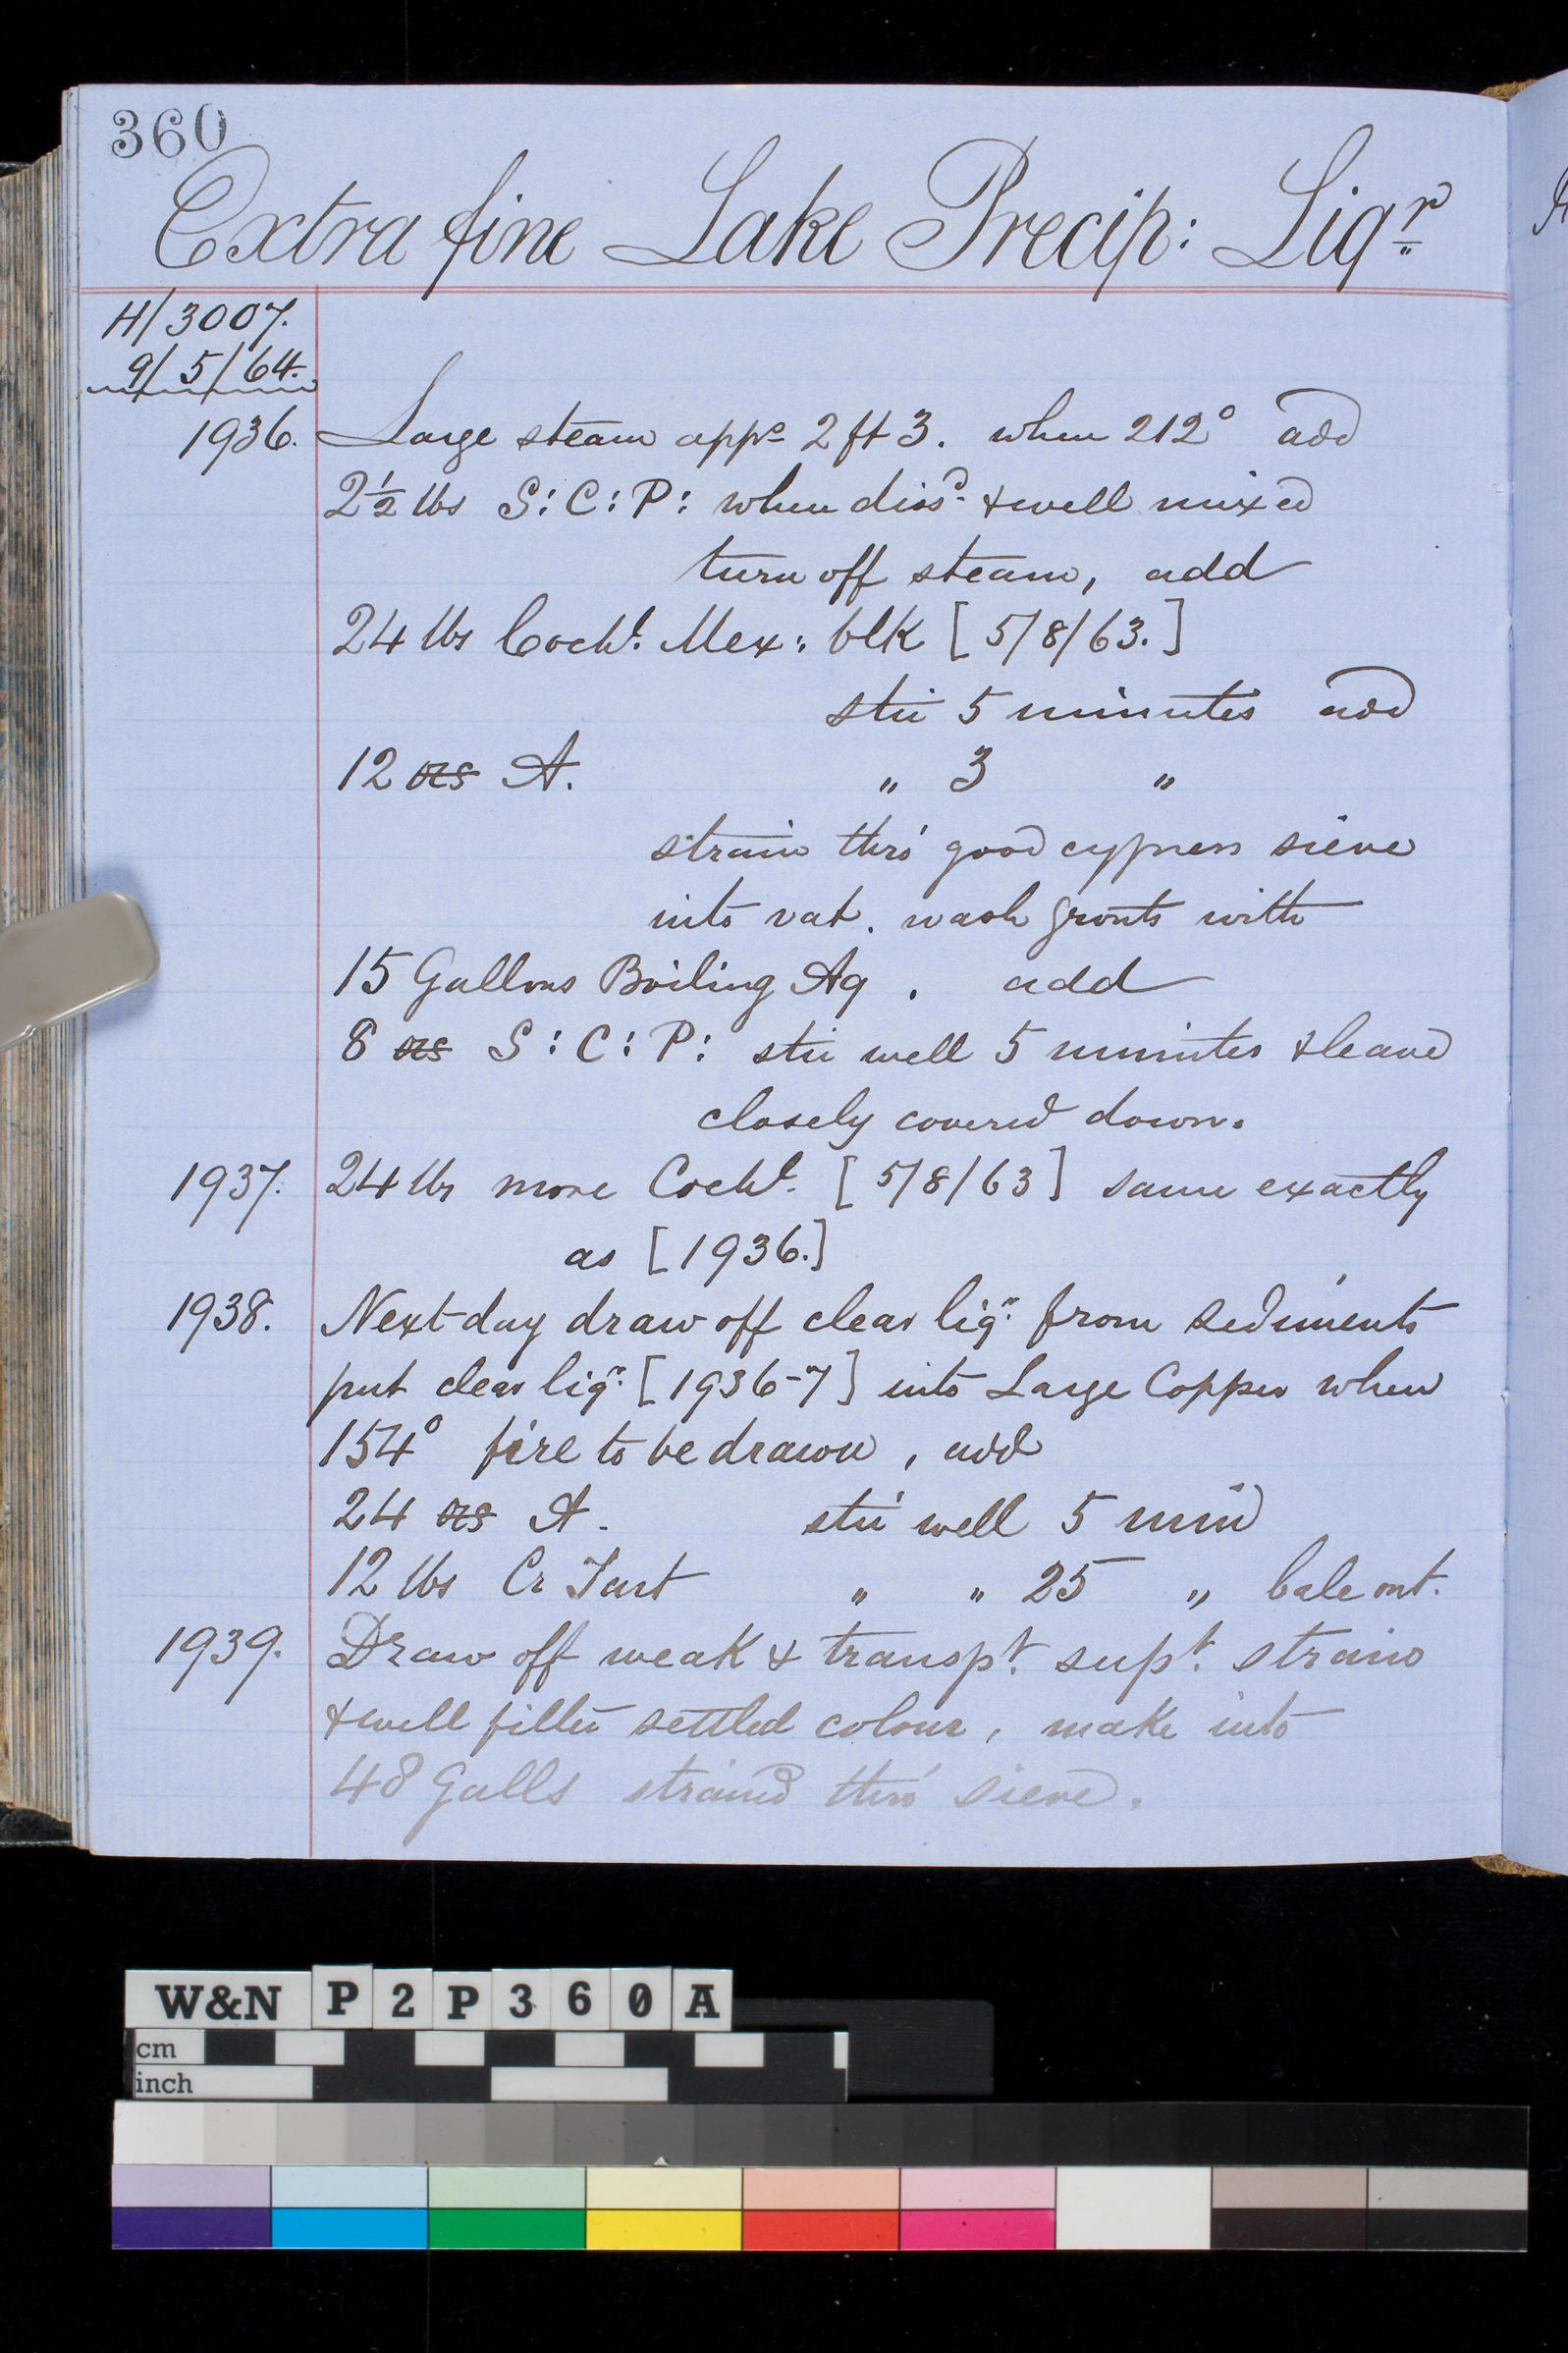 360
Extra fine Lake Precip: Liqr
H/3007.
9/5/64.
1936. Large steam apps 2 ft 3. when 212° add
2½ lbs S:C:P: when dissd. & well mixed
turn off steam, add
24 lbs Cochl. Mex: blk [5/8/63.]
stir 5 minutes add
12 ozs A. „ 3 „
strain thro' good cypress sieve
into vat. wash grouts with
15 Gallons Boiling Aq. add
8 ozs S:C:P: stir well 5 minutes & leave
closely covered down.
1937. 24 lbs more Cochl. [5/8/63] same exactly
as [1936.]
1938. Next day draw off clear liqr. from sediments
put clear liqr. [1936-7] into Large Copper when
154° fire to be drawn, add
24 ozs A. stir well 5 min
12 lbs Cr Tart „ „ 25 „ bale out.
1939. Draw off weak & transpt. supt. strain
& well filter settled colour, make into
48 Galls strained thro' sieve.
W&N P2P360A
cm
inch